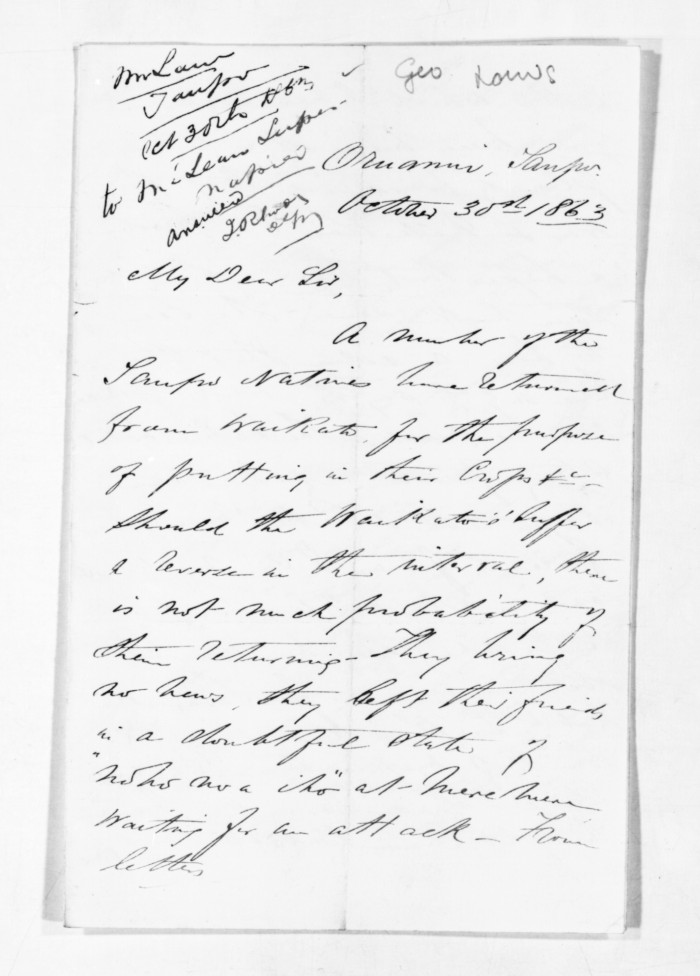 Mr Law
Taupo
Oct 30th 1863
to McLean Super
Napier
answered
Geo Laws
Oruanui, Taupo.
October 30th 1863
My Dear Sir,
A number of the
Taupo Natives have returned
from Waikato, for the purpose
of putting in their Crops &c -
Should the Waikatos' Suffer
a reverse in the interval, there
is not much probability of
their returning - They bring
no news, they left their friends
in a doubtful state of
"noho noa iho" at Meremere
waiting for an attack - From
letters